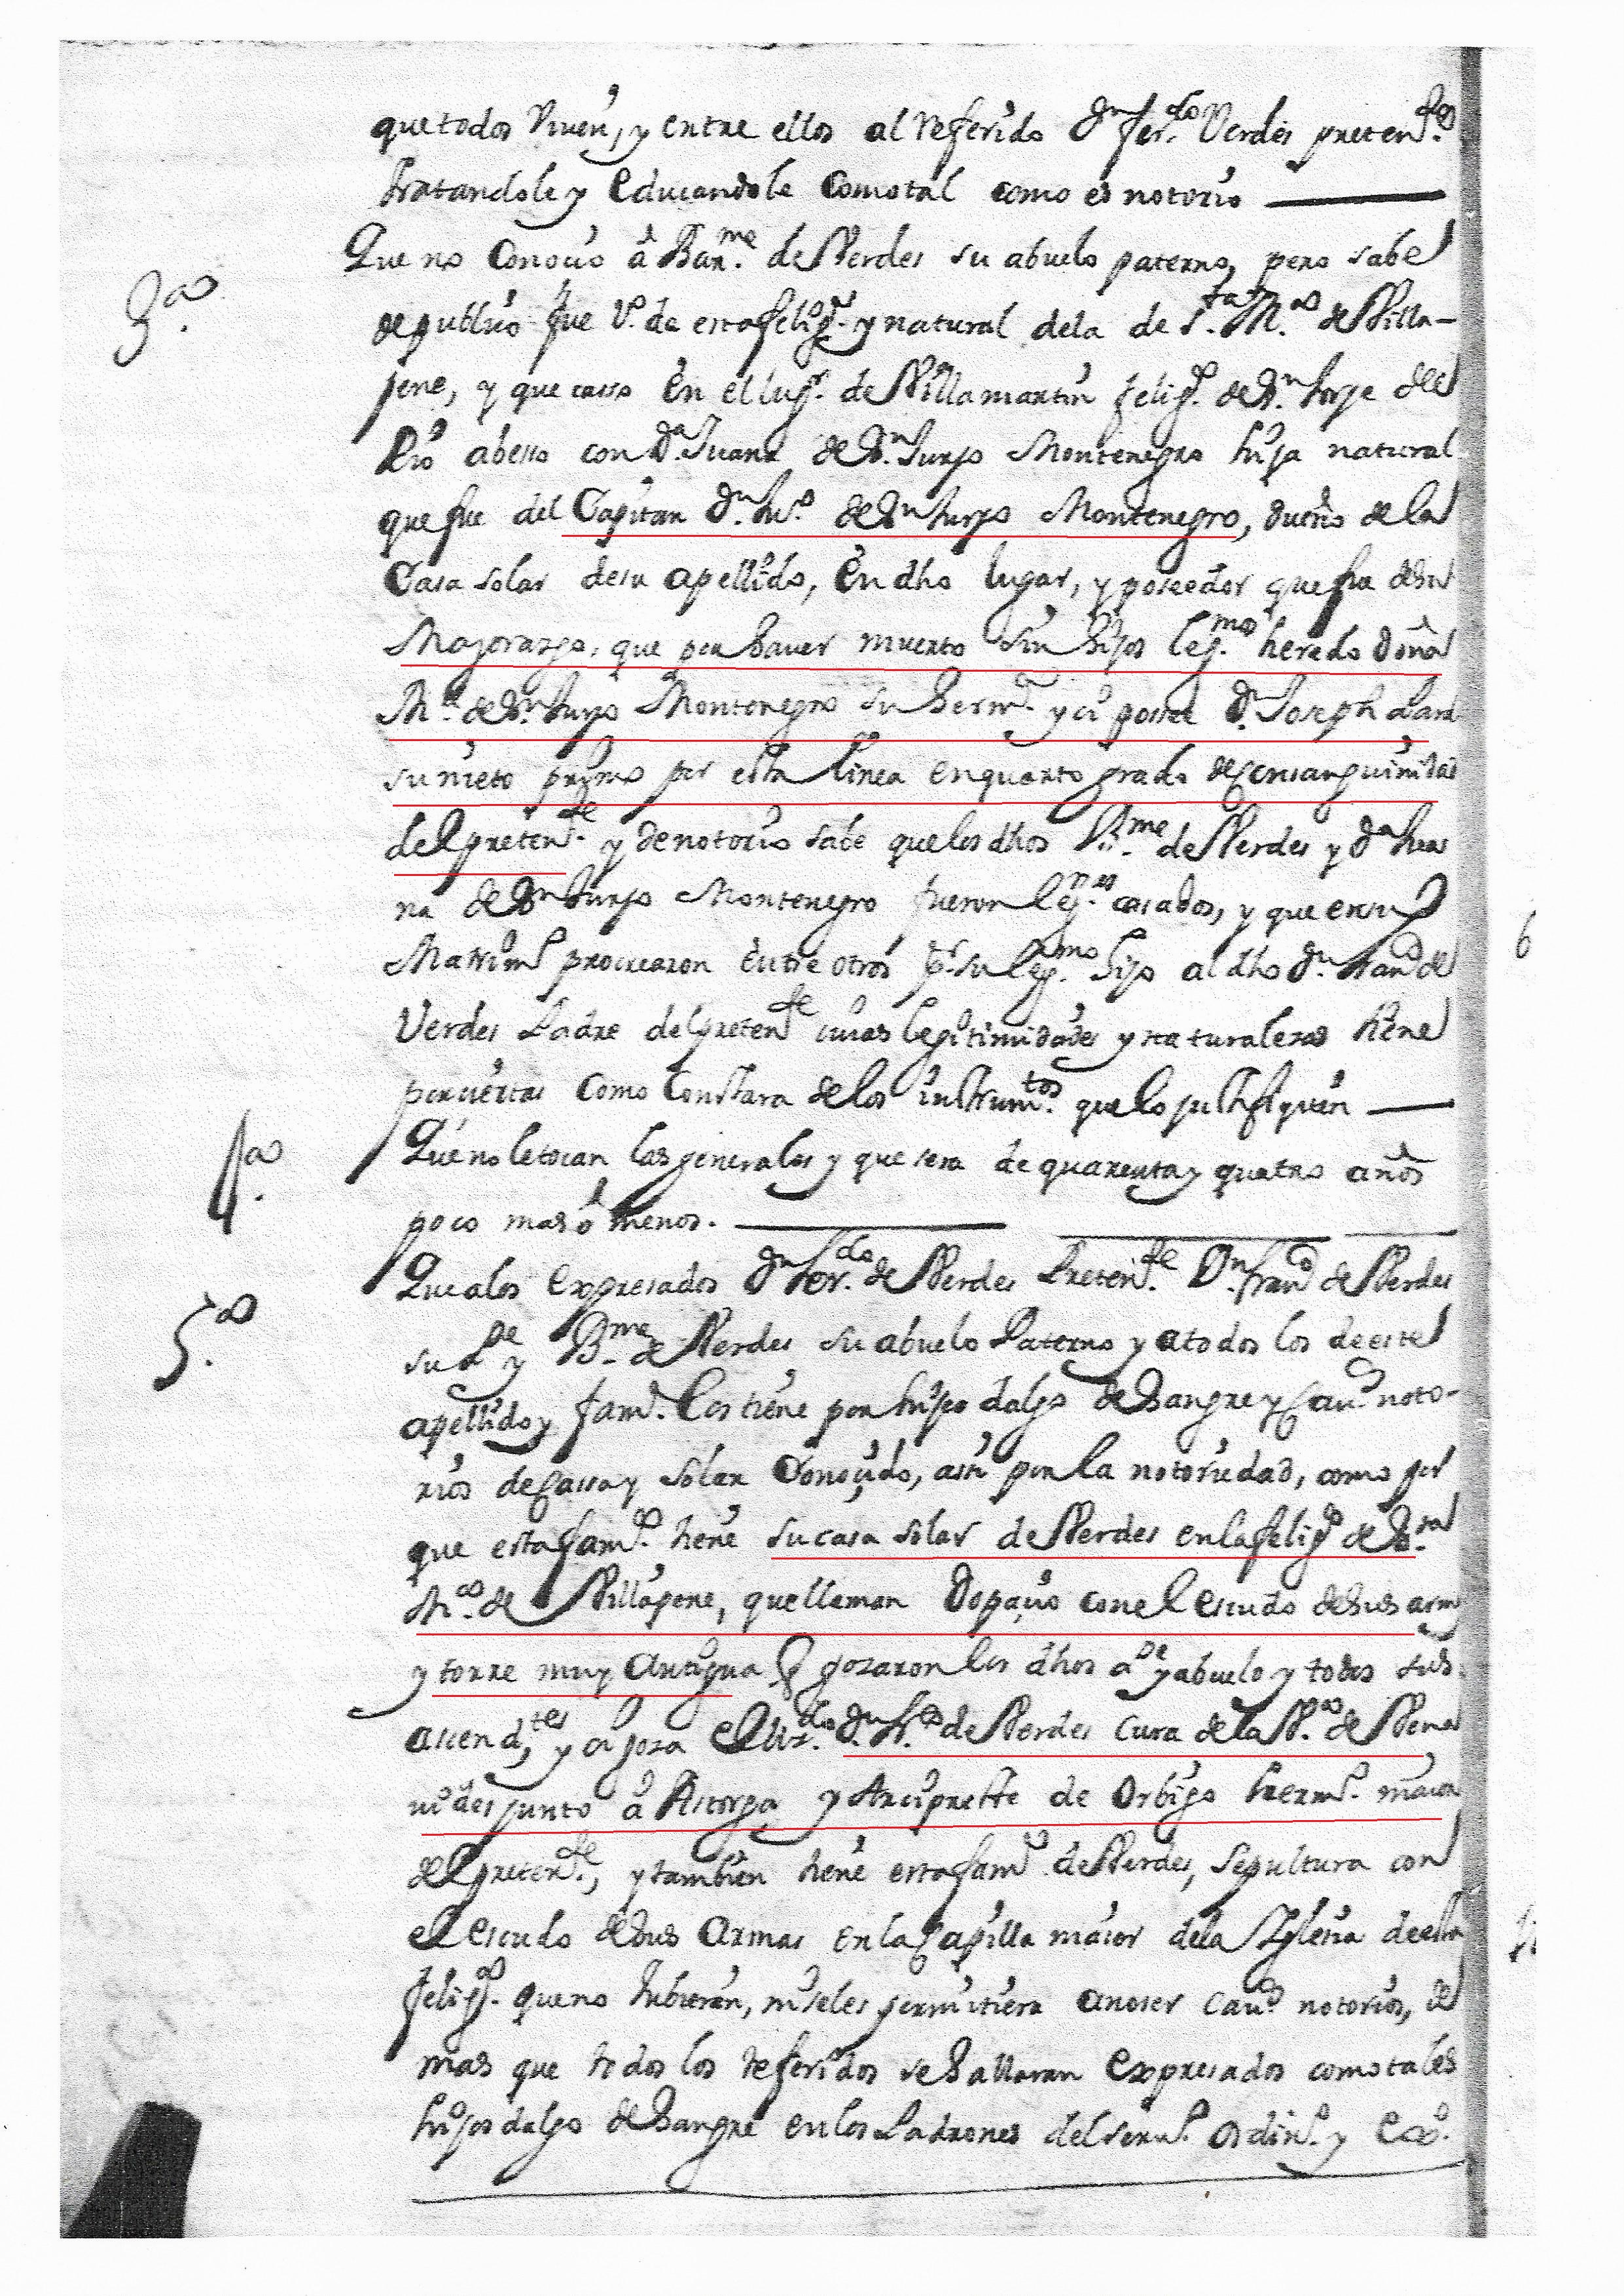 que todos Viven, y entre ellos al referido Dn fer.do Verdes preten.te
tratandole y educandole como tal como es notorio
3.a
Que no Conocio â Bar.me de Verdes su abuelo paterno, pero sabe
de publico fue V.o de esta felig.a y natural dela de S.ta M.a de Villa-
pene, y que caso en el lug.r de Villamartin felig.a de S.n Jorje de
Rio abeso con D.a Juana de S.n Jurjo Montenegro hija natural
que fue del Capitan D.n Ju.o de S.n Jurjo Montenegro, dueño de la
Casa solar de su apellido, En dho lugar, y poseedor que fue de su
Mayorazgo, que por haver muerto sin hijos leg.mos heredo Doña
M.a de S.n Jurjo Montenegro su herm.a y oi posee D.n Joseph
su nieto primo por esta linea en quarto grado de consanguinidad
del preten.te y de notorio sabe que los dhos B.me de Verdes y D.a Jua
na de S.n Jurjo Montenegro fueron leg.mos casados, y que en su
Matrim.o procrearon entre otros p.r su leg.mo hijo al dho D.n Fran.co de
Verdes Padre del preten.te cuias legitimidades y naturalezas tiene
por ciertas como Constara de los instrum.tos que lo justifiquen
4.a
Que no le tocan las generales y que sera de quarenta y quatro años
poco mas ô menos.
5.a
Que a los expresados D.n fer.do de Verdes Preten.te D.n fran.co de Verdes
su P.e y B.me de Verdes su abuelo Paterno y a todos los de este
apellido y fam.a los tiene por hijos dalgo de Sangre y Cav.os noto-
rios de Cassa y Solar Conoçido, assi por la notoriedad, como por
que esta fam.a tiene su casa solar de Verdes en la felig.a de S.ta
M.a de Villapene, que llaman Dopaço con el escudo de sus arm
y torre muy Antigua q gozaron los dhos P.e y abuelo y todos sus
ascend.tes y oi goza el Liz.do D.n Fr.co de Verdes Cura de la V.a de Vena
vides junto â Astorga y Arcipreste de Orbigo herm.o maior
del preten.te, y tambien tiene esta fam.a de Verdes, sepultura con
el escudo de sus Armas en la Capilla maior dela Iglesia de esta
felig.a que no tubieran, ni seles permitiera a no ser Cav.os notorios, de
mas que todos los referidos se hallaran Expresados como tales
hijos dalgo de Sangre en los Padrones del serv.o Ordin.o y Exo.